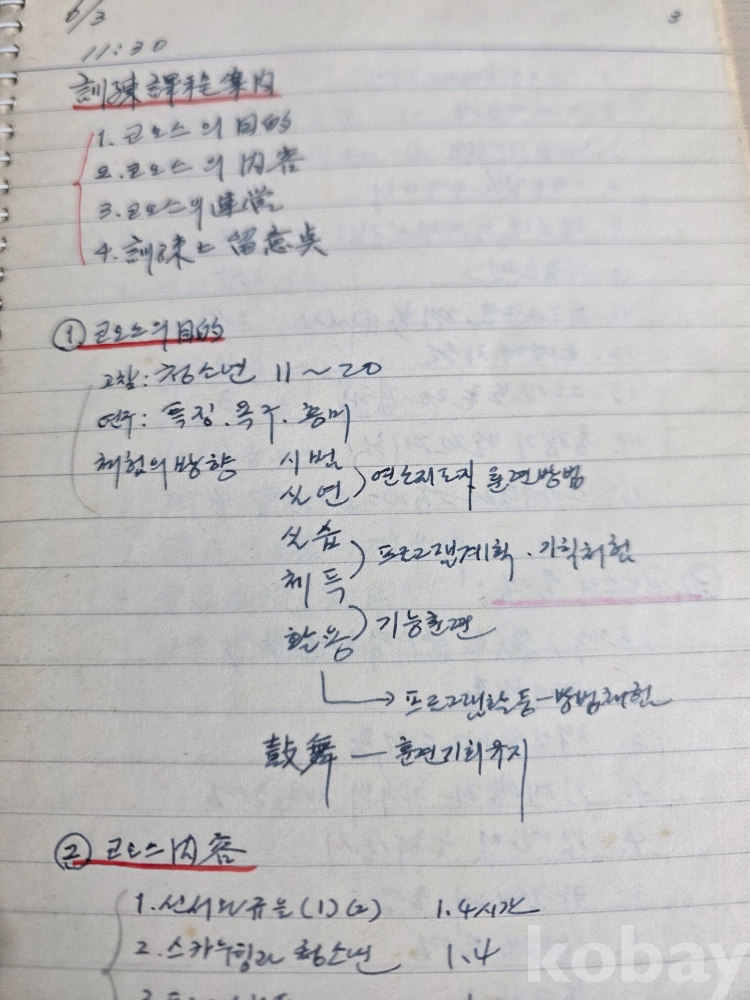 6/3
3
11:30
訓練課程案内
1. 코오스의 目的
2. 코오스의 内容
3. 코오스의 運営
4. 訓練上 留意点
① 코오스의 目的
고찰: 청소년 11~20
연구: 특징. 욕구. 흥미
체험의 방향 시범
실연 훈련방법
실습
프로그램계획. 기획
체득
활용 기능훈련
프로그램활동-방법체험
鼓舞 — 훈련기회유지
② 코오스 内容
1. 선서와 규율 (1)(2) 1.4시간
2. 스카우팅과 청소년 1.4
kobay